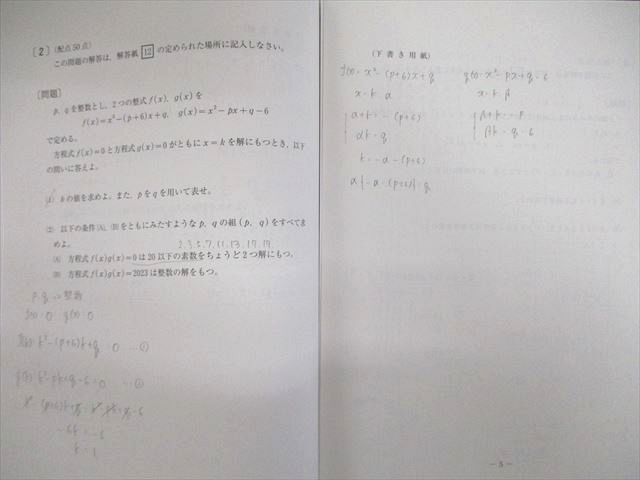 ［2］（配点50点）
この問題の解答は，解答紙 12 の定められた場所に記入しなさい。
［問題］
p，q を整数とし，2つの整式 f(x)，g(x) を
f(x)=x²-(p+6)x+q，g(x)=x²-px+q-6
で定める。
方程式 f(x)=0 と方程式 g(x)=0 がともに x=k を解にもつとき，以下
の問いに答えよ。
(1) k の値を求めよ。また，p を q を用いて表せ。
(2) 以下の条件(A)，(B)をともにみたすような p，q の組 (p，q) をすべて求
めよ。
2,3,5,7,11,13,17,19
(A) 方程式 f(x)g(x)=0 は 20 以下の素数をちょうど2つ解にもつ。
(B) 方程式 f(x)g(x)=2023 は整数の解をもつ。
p, q → 整数
f(x)=0 g(x)=0
k²-(p+6)k+q=0 …①
k²-pk+q-6=0 …②
-6k=-6
k=1
（下書き用紙）
f(x)=x²-(p+6)x+q g(x)=x²-px+q-6
x=k, α x=k, β
α+k=-(p+6) β+k=-p
αk=q βk=q-6
k=-α-(p+6)
α{-α-(p+6)}=q
－5－